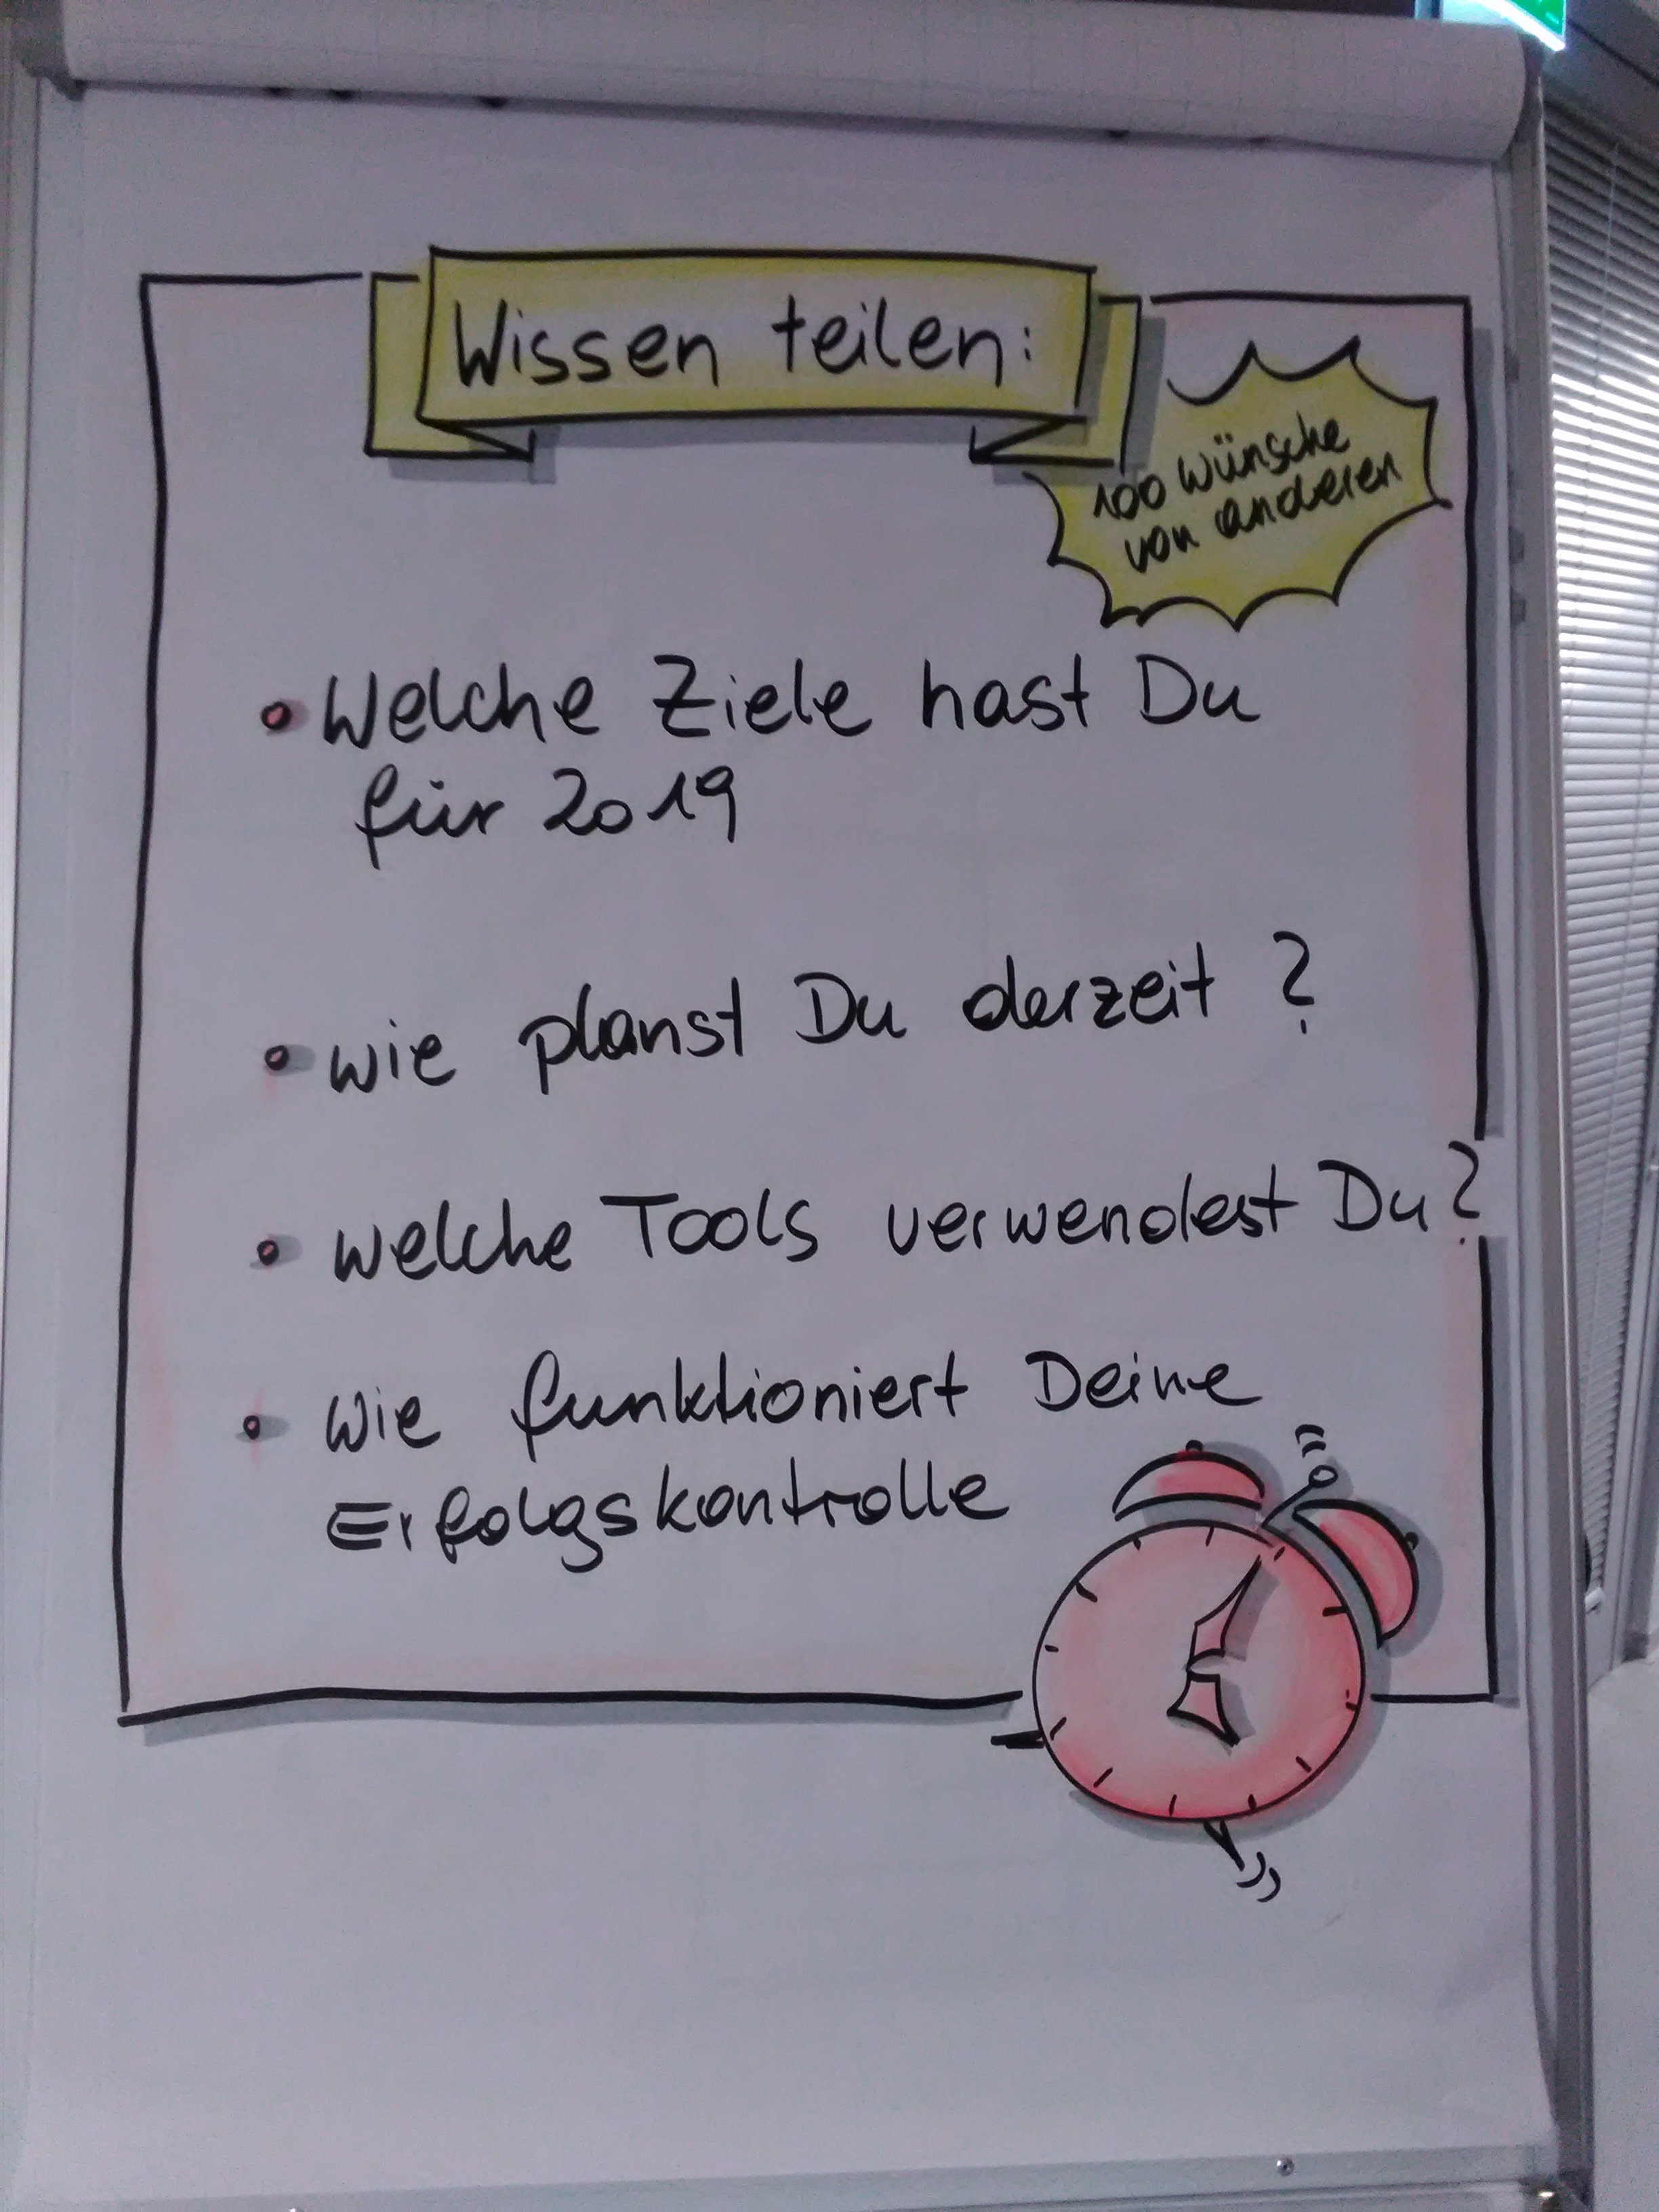 Wissen teilen:
100 wünsche
von anderen
• Welche Ziele hast Du
für 2019
• wie planst Du derzeit ?
• welche Tools verwendest Du?
• wie funktioniert Deine
Erfolgskontrolle